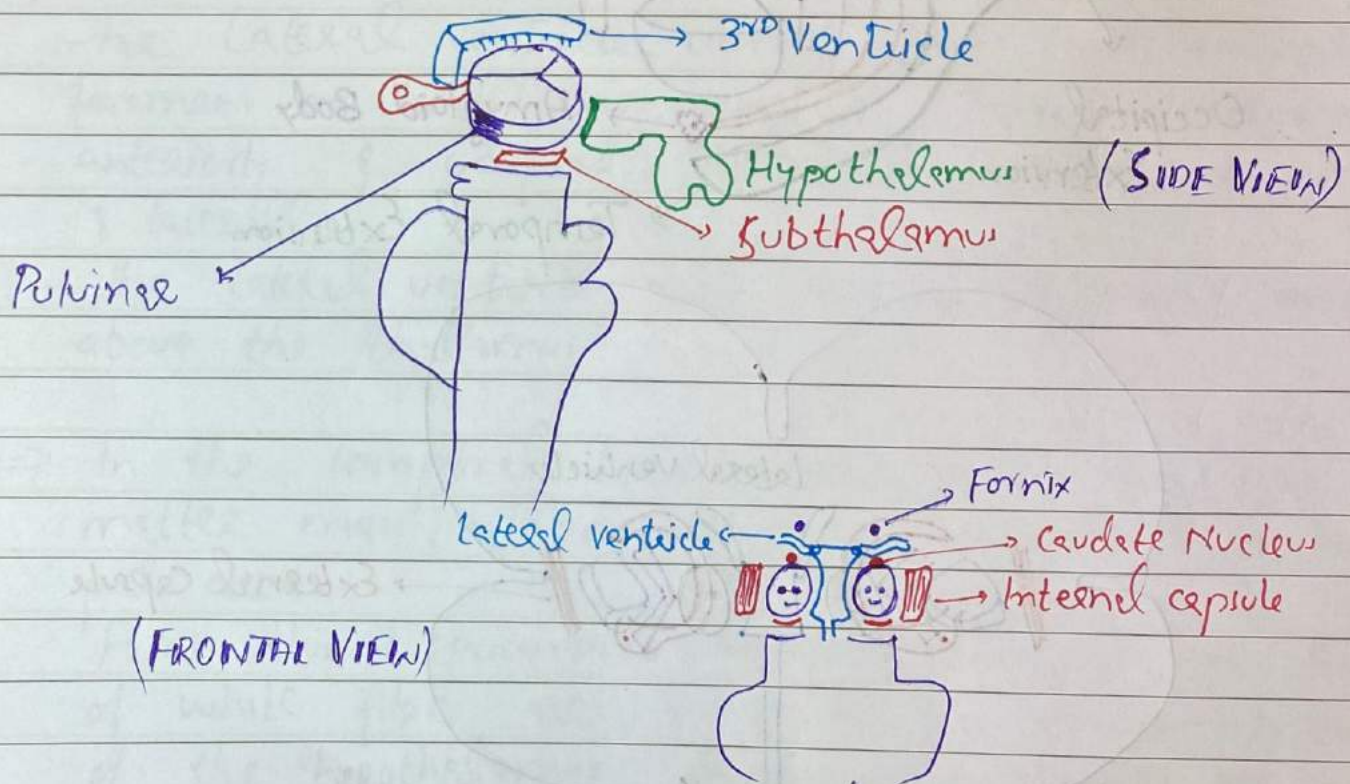 3RD Ventricle
Hypothalamus (SIDE VIEW)
Subthalamus
Pulvinar
Fornix
Lateral ventricle
Caudate Nucleus
Internal capsule
(FRONTAL VIEW)